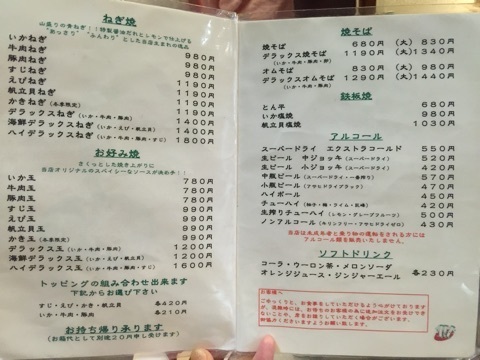 ねぎ焼
山盛りの青ねぎ!!特製醤油だれとレモンで仕上げる
"あっさり" "ふんわり" とした当店生まれの逸品
いかねぎ 980円
牛肉ねぎ 980円
豚肉ねぎ 980円
すじねぎ 980円
えびねぎ 1190円
帆立貝ねぎ 1190円
かきねぎ(冬季限定) 1190円
デラックスねぎ(いか・牛肉・豚肉) 1400円
海鮮デラックスねぎ(いか・えび・帆立貝) 1400円
ハイデラックスねぎ 1800円
お好み焼
さくっとした焼き上がりに
当店オリジナルのスパイシーなソースが決め手!!
いか玉 780円
牛肉玉 780円
豚肉玉 780円
すじ玉 780円
えび玉 990円
帆立貝玉 990円
かき玉(冬季限定) 990円
デラックス玉(いか・牛肉・豚肉) 1200円
海鮮デラックス玉(いか・えび・帆立貝) 1200円
ハイデラックス玉 1600円
トッピングの組み合わせ出来ます
下記からお選び下さい
すじ・えび・かき・帆立貝 各420円
いか・牛肉・豚肉 各210円
お持ち帰り承ります
(お箱代として別途20円申し受けます)
焼そば
焼そば 680円 (大) 830円
デラックス焼そば 1190円 (大) 1340円
オムそば 830円 (大) 980円
デラックスオムそば 1290円 (大) 1440円
鉄板焼
とん平 680円
いか塩焼 980円
帆立貝塩焼 1030円
アルコール
スーパードライ エクストラコールド 550円
生ビール 中ジョッキ(スーパードライ) 520円
生ビール 小ジョッキ(スーパードライ)
中瓶ビール(スーパードライ・一番搾り)
小瓶ビール(アサヒドライブラック)
ハイボール
チューハイ
生搾りチューハイ(レモン・グレープフルーツ) 500円
ノンアルコール(キリンフリー・アサヒドライゼロ) 430円
当店は未成年者と乗り物の運転をされる方には
アルコール類を販売いたしません。
ソフトドリンク
コーラ・ウーロン茶・メロンソーダ
オレンジジュース・ジンジャーエール 各230円
お客様へ